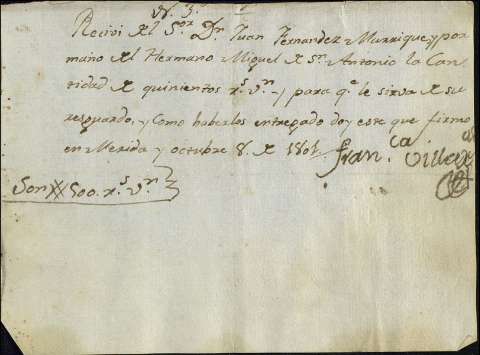 N. 3.
Recivi del S.or Dn Juan Fernandez Manrique, y por
mano del Hermano Miguel de Sn Antonio la Can-
tidad de quinientos r.s v.n y para q.e le sirva de su
resguardo, y Como haberlos entregado doy este que firmo
en Merida y octubre 8. de 1801.
Fran.ca
Son 500. r.s v.n